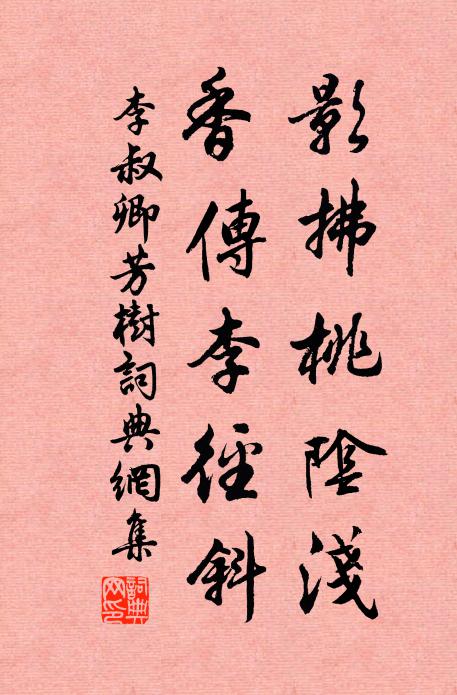 影拂桃陰淺
香傳李徑斜
李叔卿芳樹詞典網集
詞典
网印